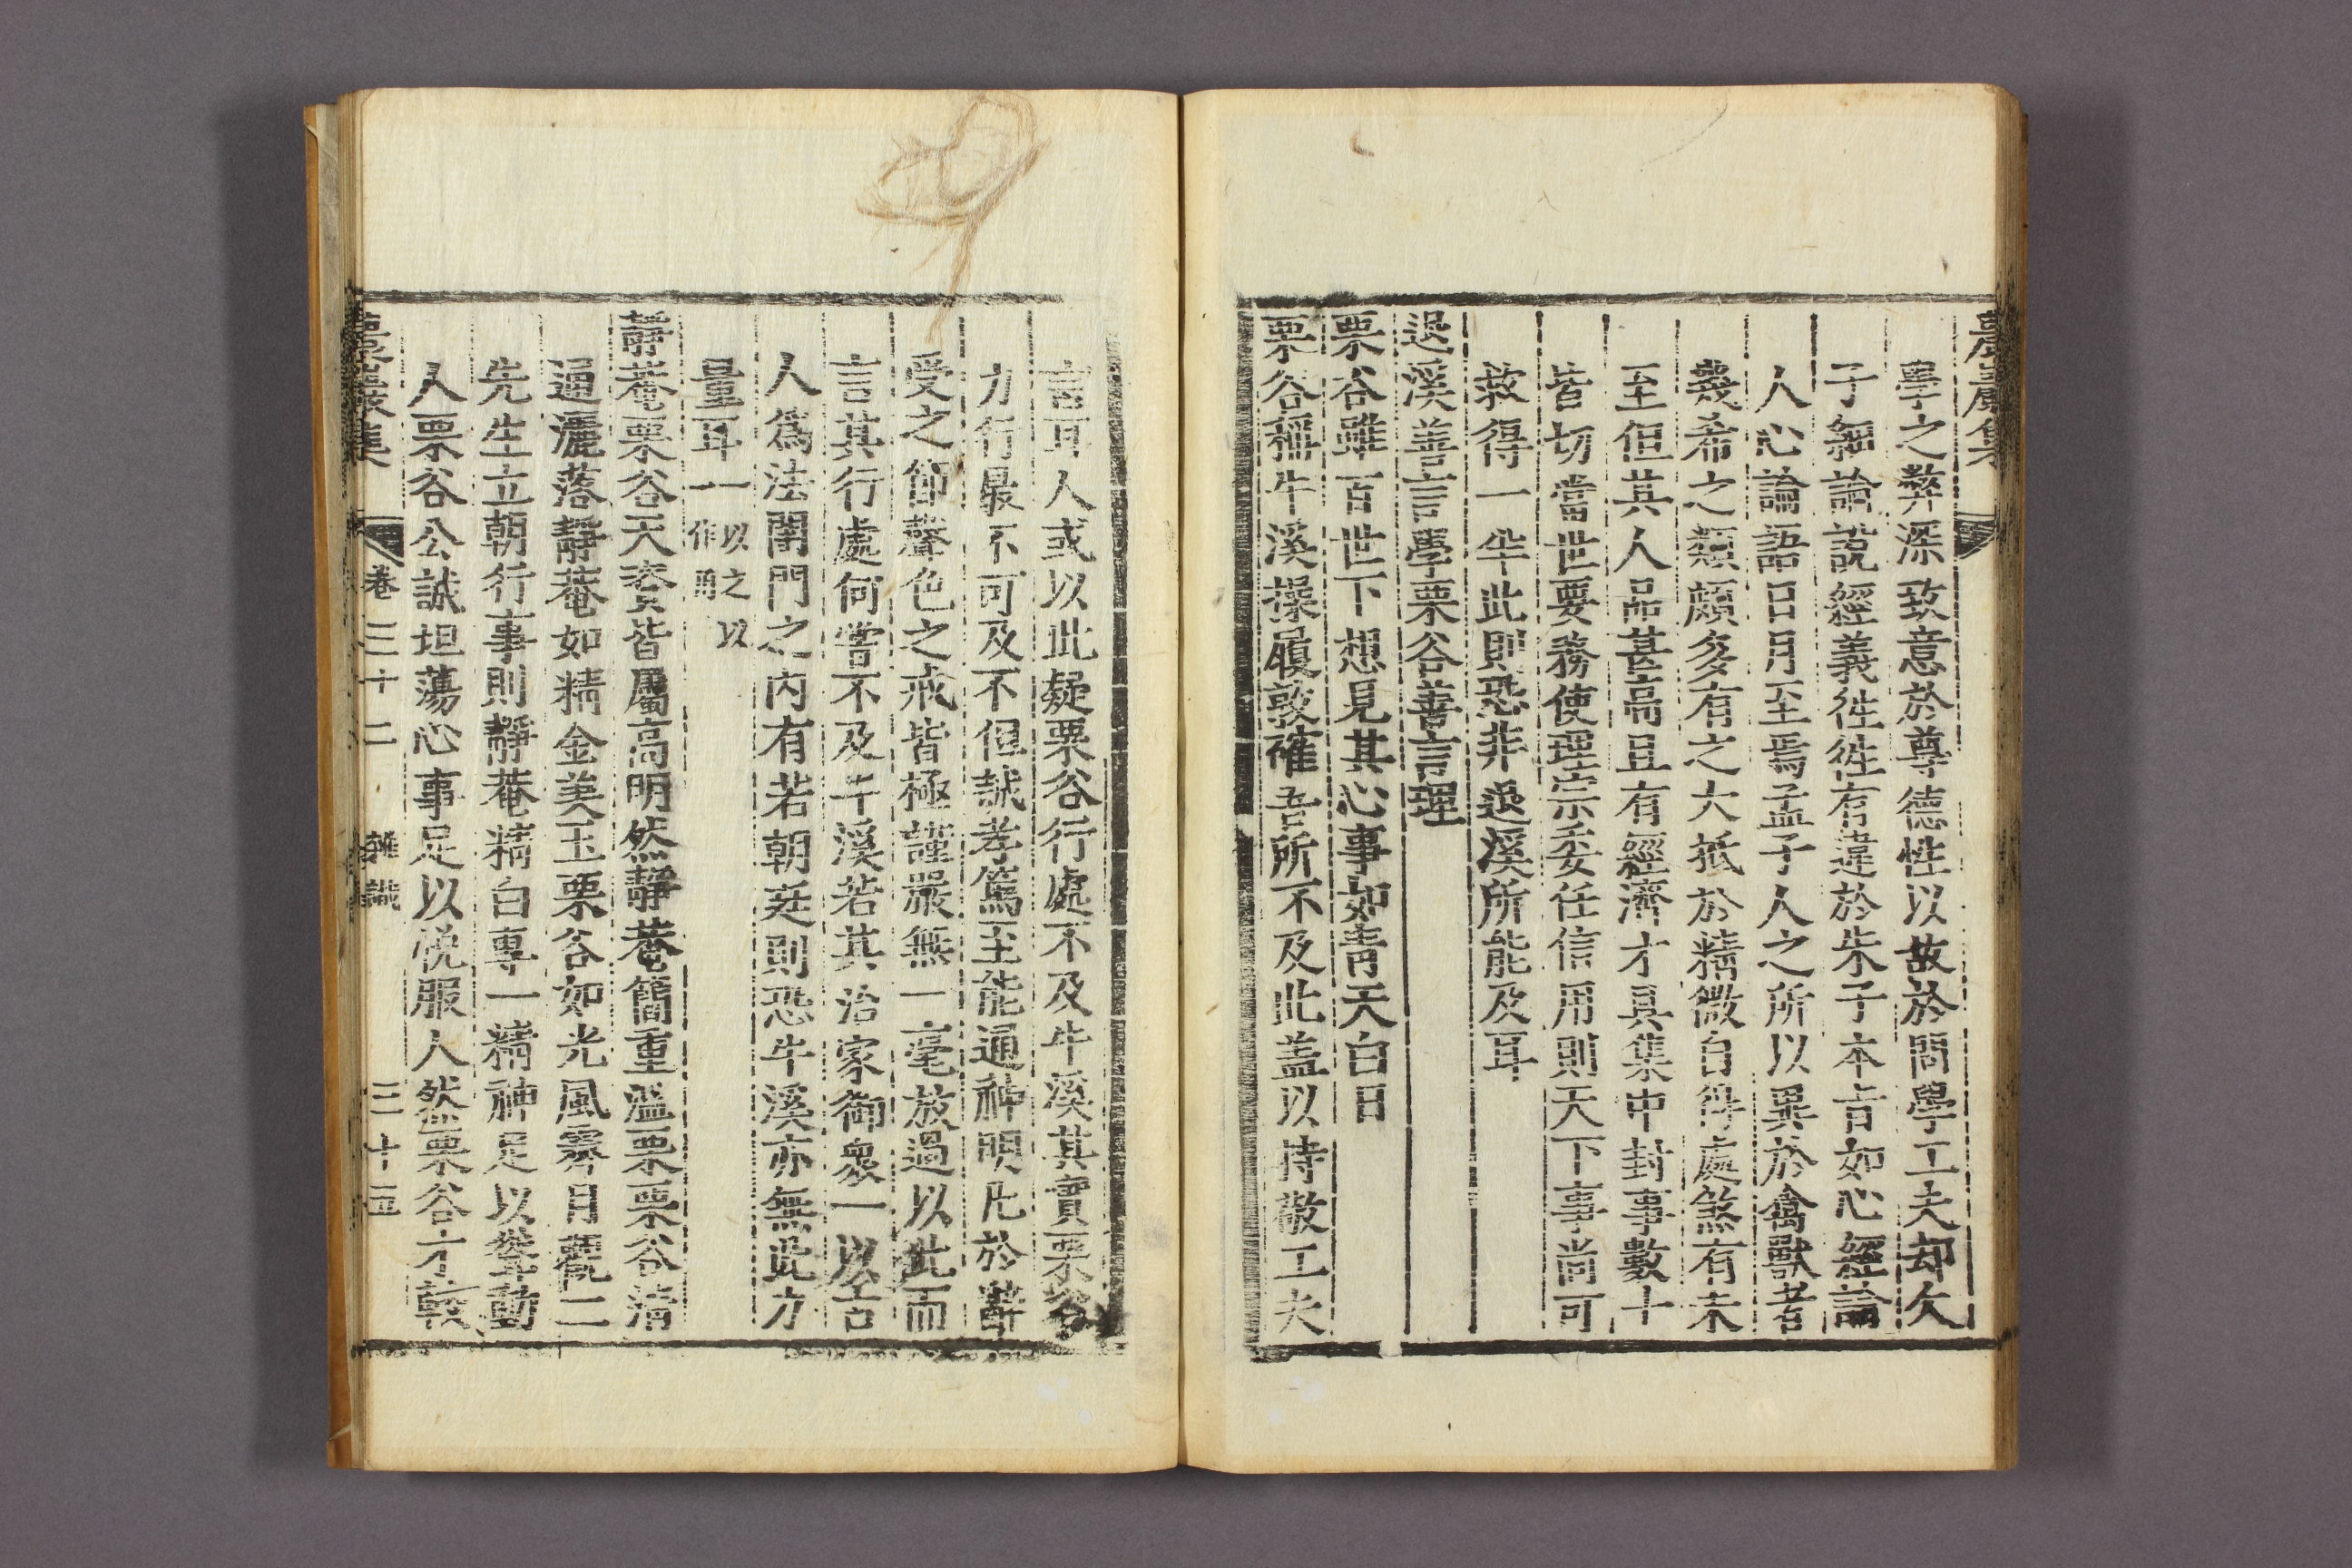 農巖集
學之弊深致意於尊德性以故於問學工夫却欠
子細論說經義徃徃有違於朱子本旨如心經論
人心論語日月至焉孟子人之所以異於禽獸者
幾希之類頗多有之大抵於精微自得處煞有未
至但其人品甚高且有經濟才具集中封事數十
皆切當世要務使理宗委任信用則天下事尚可
救得一半此則恐非退溪所能及耳
退溪善言學栗谷善言理
栗谷雖百世下想見其心事如靑天白日
栗谷稱牛溪操履敦確吾所不及此盖以持敬工夫
言耳人或以此疑栗谷行處不及牛溪其實栗谷
力行最不可及不但誠孝篤至能通神明凡於辭
受之節聲色之戒皆極謹嚴無一毫放過以此而
言其行處何嘗不及牛溪若其治家御衆一以古
人爲法閨門之內有若朝廷則恐牛溪亦無此力
量耳一以之以
作勇
靜菴栗谷天資皆屬高明然靜菴簡重溫栗栗谷淸
通灑落靜菴如精金美玉栗谷如光風霽月觀二
先生立朝行事則靜菴精白專一精神足以聳動
人栗谷公誠坦蕩心事足以悅服人然栗谷才較
農巖集 卷三十二 雜識 三十五